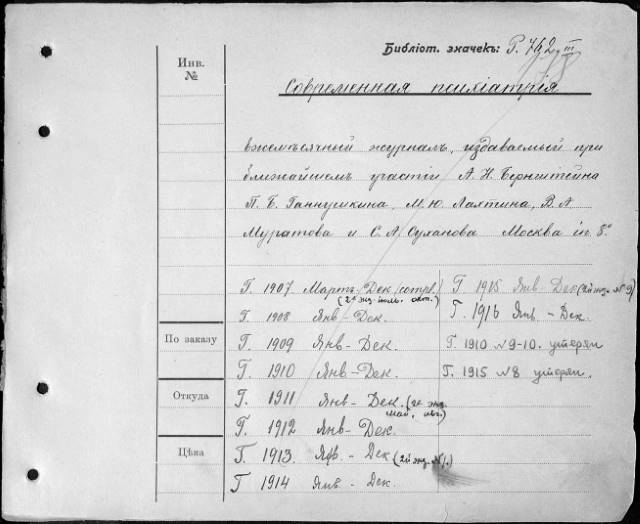 Библіот. значекъ: Р. 762 III
Инв.
№
Современная психіатрія
ежемѣсячный журналъ, издаваемый при
ближайшемъ участіи А. Н. Бернштейна
П. Б. Ганнушкина, М. Ю. Лахтина, В. А.
Муратова и С. А. Суханова Москва in 8°
Г. 1907 Мартъ-Дек. Г. 1915 Янв-Дек (2й экз. № 9)
Г. 1908 Янв-Дек. Г. 1916 Янв.-Дек.
По заказу
Г. 1909 Янв-Дек. Г. 1910 №9-10. утерян
Г. 1910 Янв-Дек. Г. 1915 №8 утерян.
Откуда
Г. 1911 Янв-Дек. (2й экз.
май, авг.)
Г. 1912 Янв-Дек.
Цѣна
Г. 1913. Янв.-Дек (2й экз. №1.)
Г 1914 Янв-Дек.